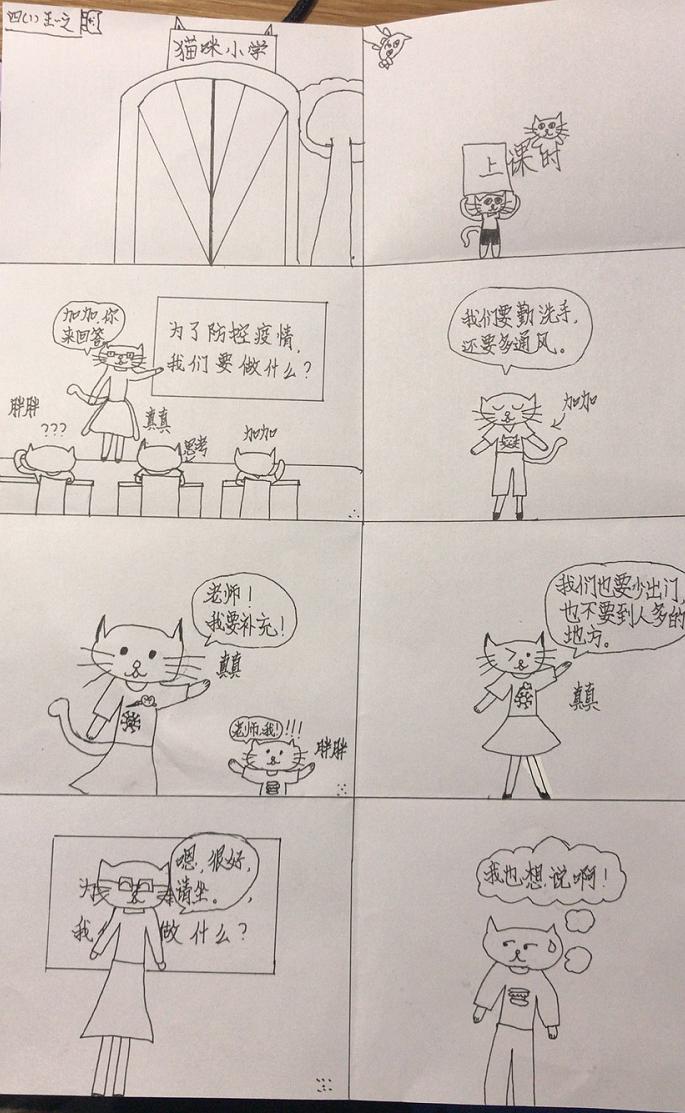 四(1)王一之
猫咪小学
上课时
加加,你
来回答
为了防控疫情,
我们要做什么?
胖胖
???
真真
思考
加加
我们要勤洗手,
还要多通风。
加加
老师!
我要补充!
真真
老师,我!)!!!
胖胖
我们也要少出门,
也不要到人多的
地方。
真真
嗯,很好,
请坐。
为
我 做什么?
我也想说啊!